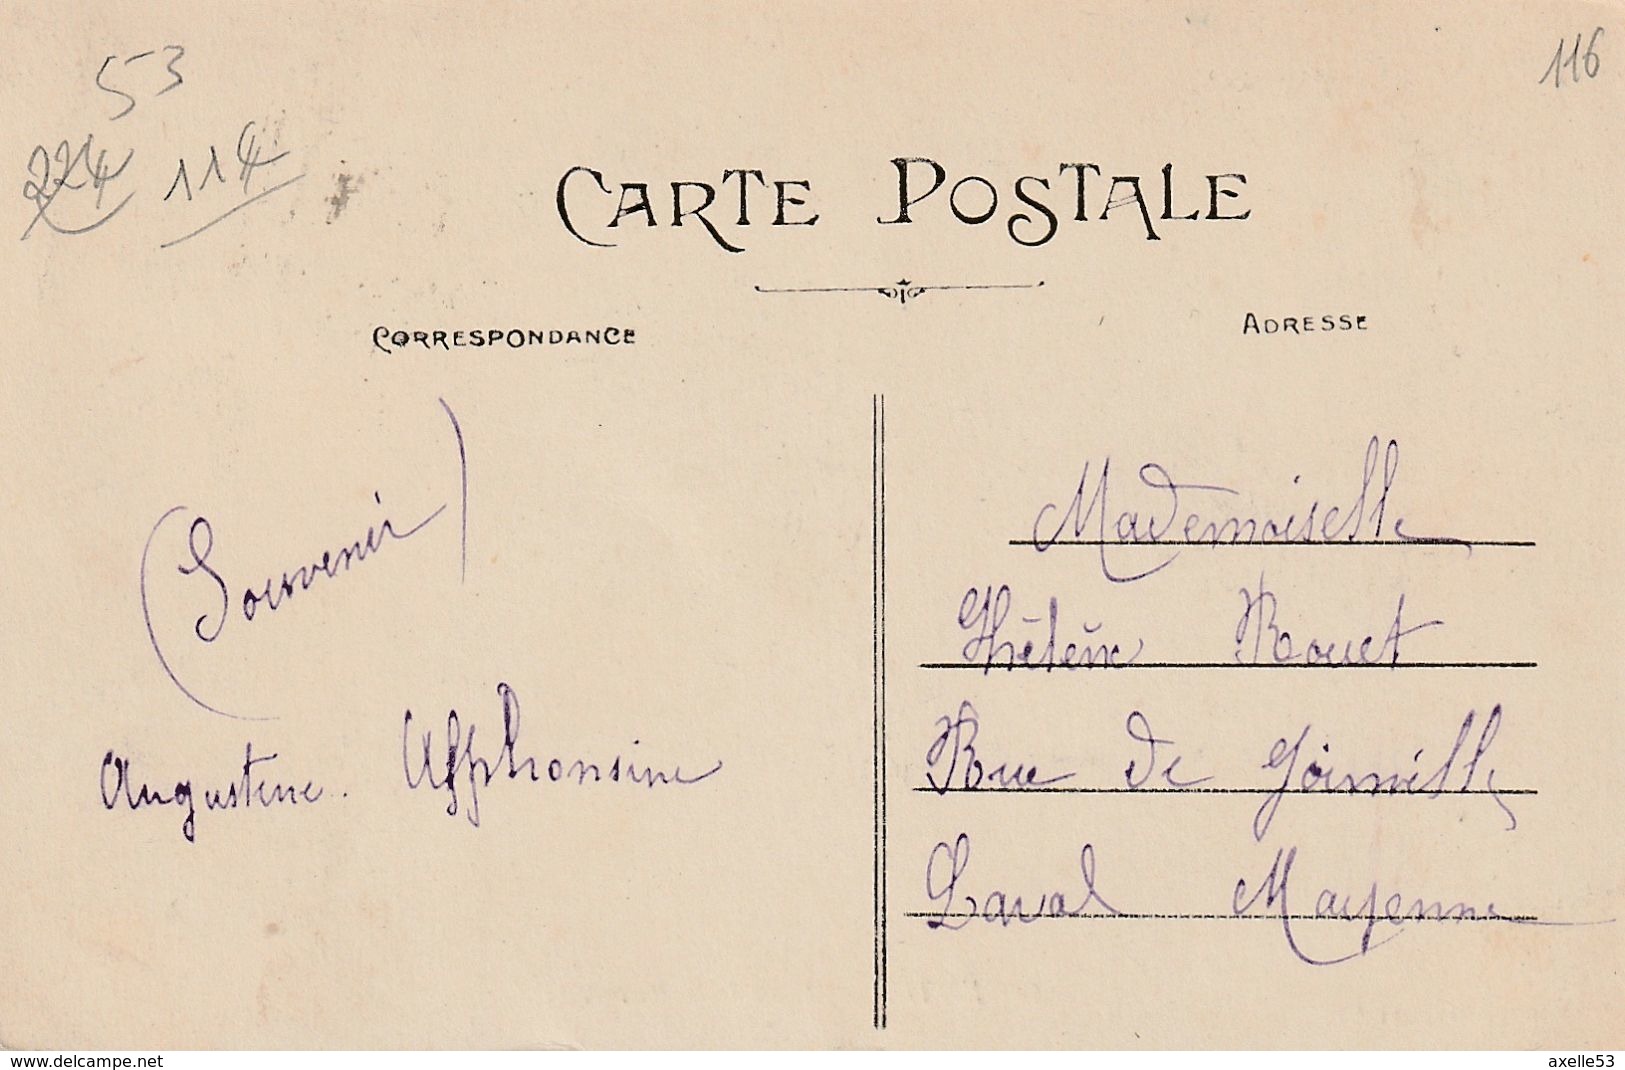 53
116
224 114
CARTE POSTALE
CORRESPONDANCE
ADRESSE
(Souvenir)
Augustine. Alphonsine
Mademoiselle
Hélène Rouet
Rue de Joinville
Laval Mayenne
www.delcampe.net
axelle53